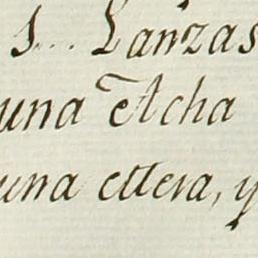 s... Lanzas
una etcha
una ettera, y